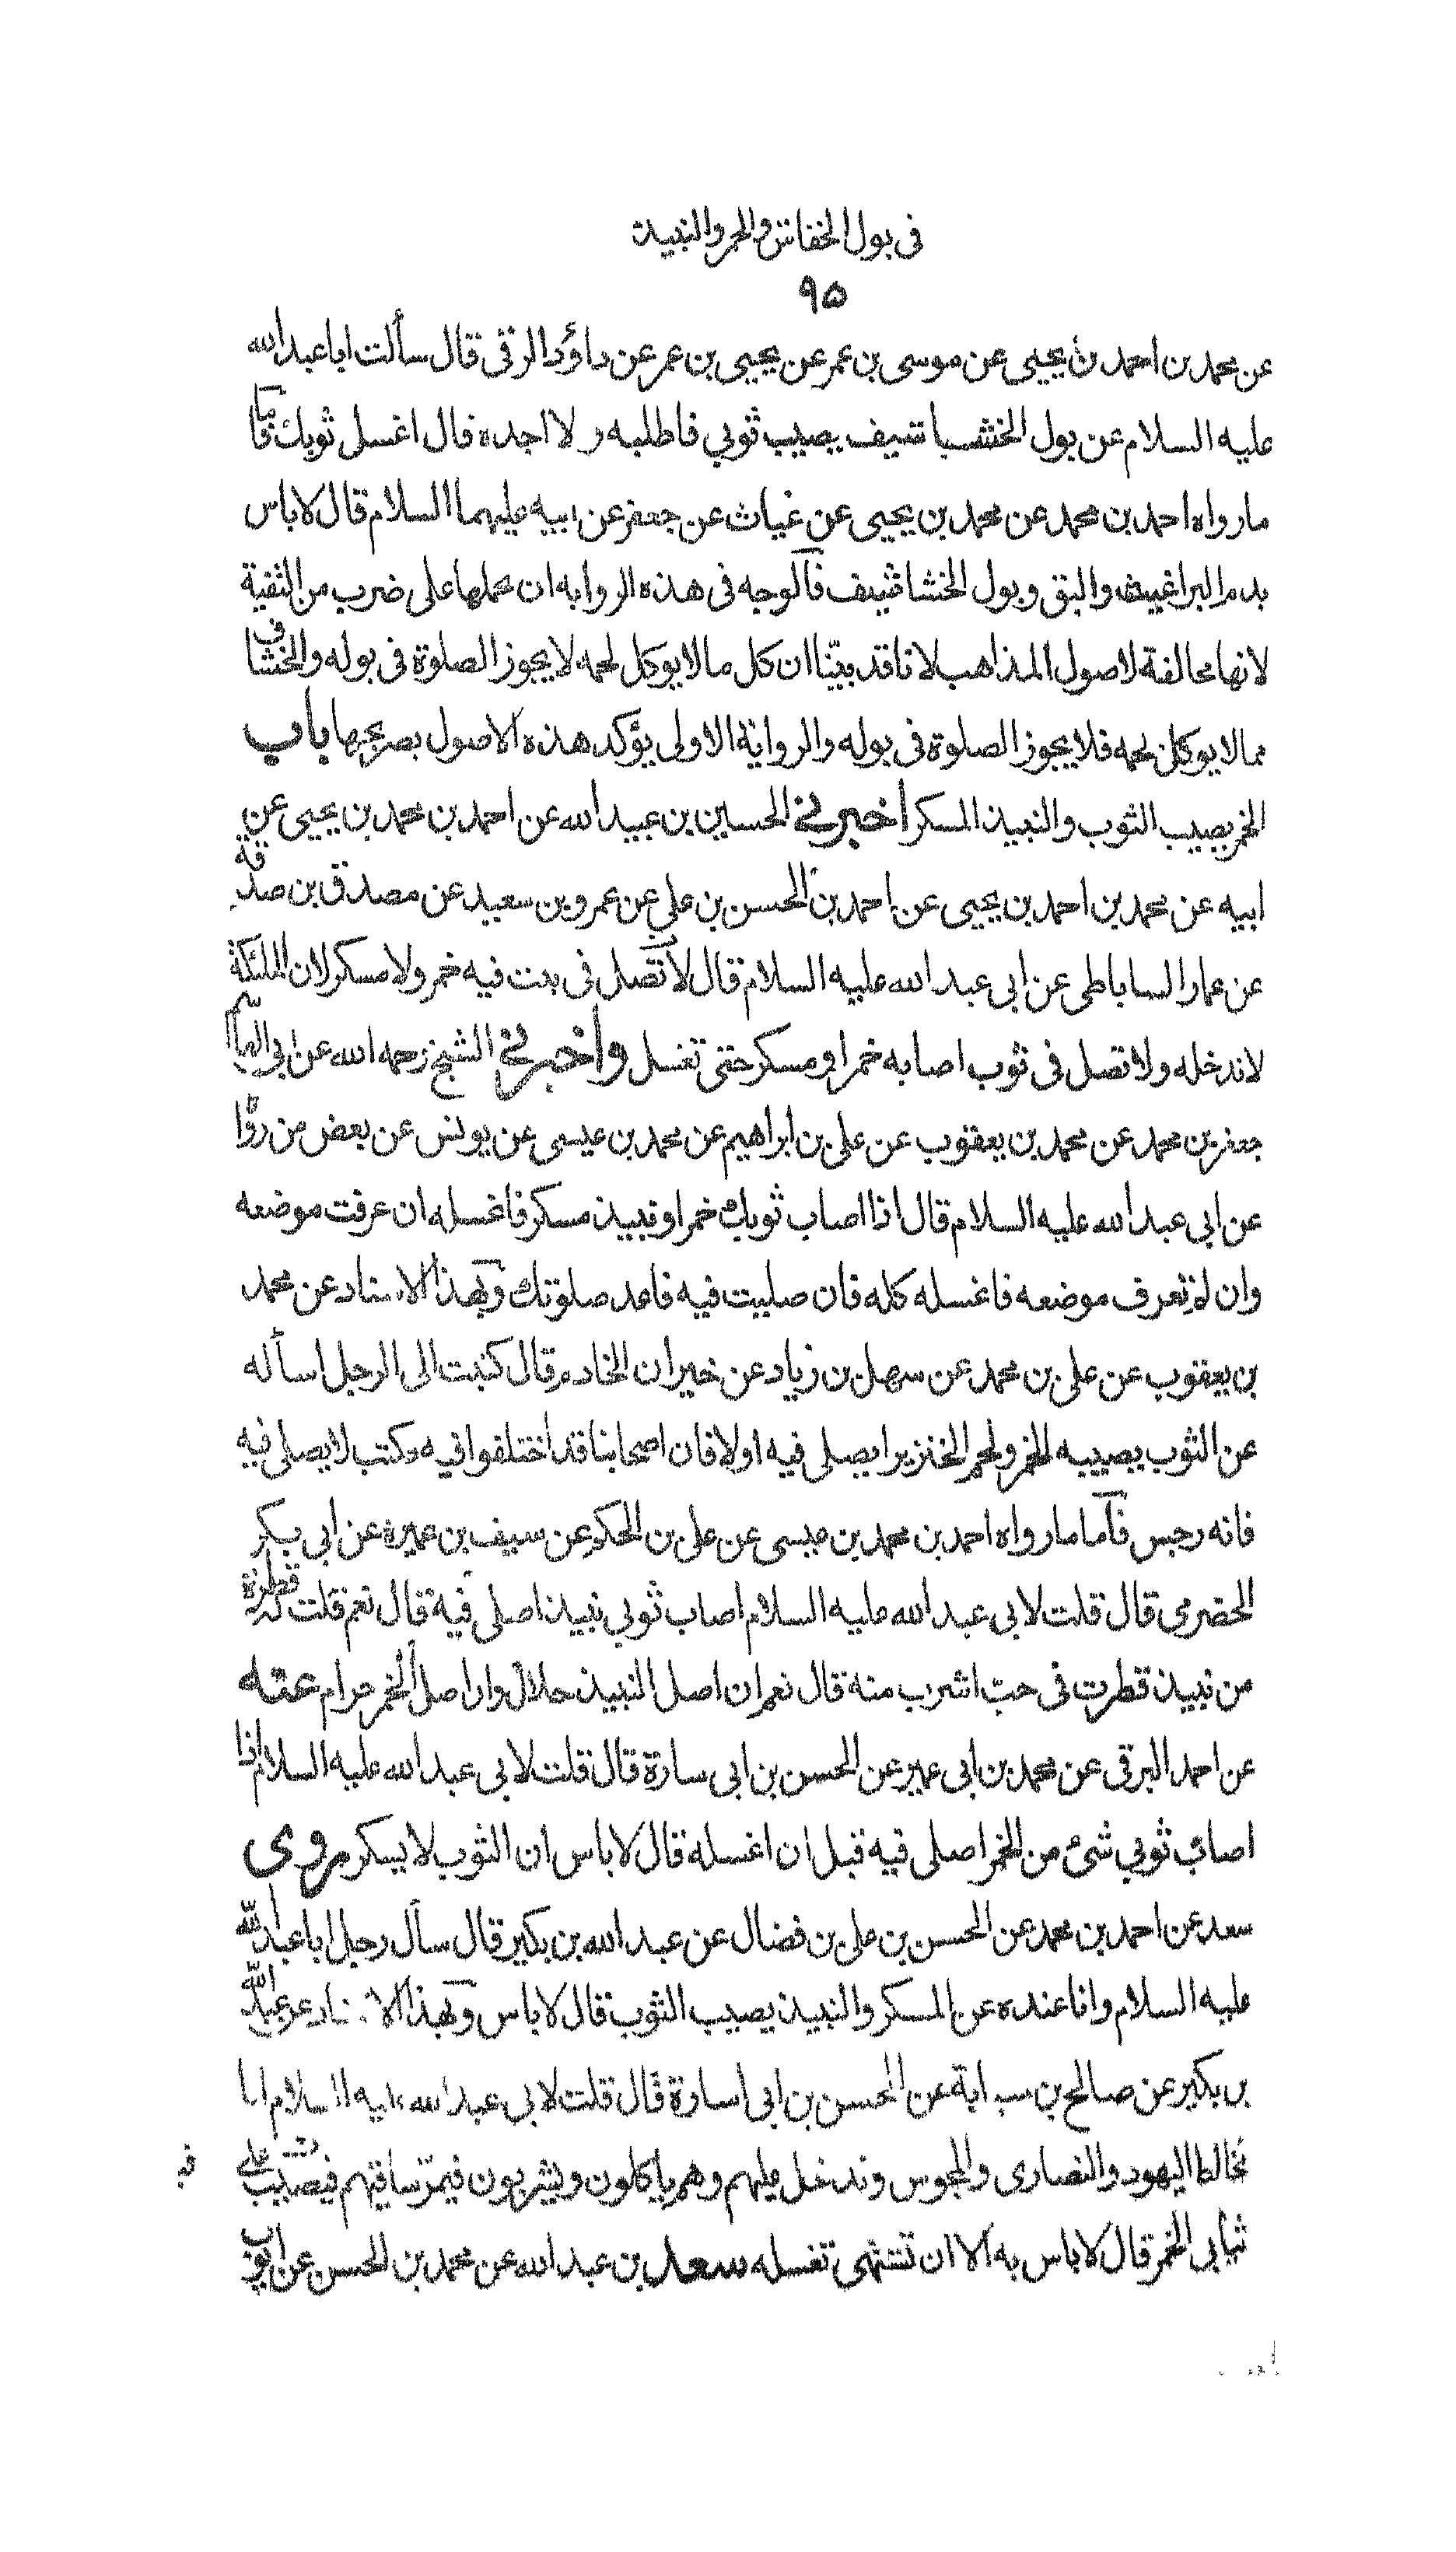 في بول الخفاش والخمر والنبيذ
٩٥
عن محمد بن احمد بن يحيى عن موسى بن عمر عن يحيى بن عمر عن داؤد الرقى قال سألت ابا عبد الله
عليه السلام عن بول الخشاشيف يصيب ثوبي فاطلبه ولا اجده قال اغسل ثوبك فاما
ما رواه احمد بن محمد عن محمد بن يحيى عن غياث عن جعفر عن ابيه عليهما السلام قال لا باس
بدم البراغيث والبق وبول الخشاشيف فالوجه فى هذه الرواية ان نحملها على ضرب من التقية
لانها مخالفة لاصول المذاهب لانا قد بيّنا ان كل ما لا يوكل لحمه لا يجوز الصلوة فى بوله والخشاف
مما لا يوكل لحمه فلا يجوز الصلوة فى بوله والرواية الاولى يؤكد هذه الاصول بصريحها باب
الخمر يصيب الثوب والنبيذ المسكر اخبرني الحسين بن عبيد الله عن احمد بن محمد بن يحيى عن
ابيه عن محمد بن احمد بن يحيى عن احمد بن الحسن بن علي عن عمرو بن سعيد عن مصدق بن صدقة
عن عمار الساباطى عن ابى عبد الله عليه السلام قال لا تصل فى بيت فيه خمر ولا مسكر لان الملئكة
لا تدخله ولا تصل فى ثوب اصابه خمر او مسكر حتى تغسل واخبرني الشيخ رحمه الله عن ابي القاسم
جعفر بن محمد عن محمد بن يعقوب عن على بن ابراهيم عن محمد بن عيسى عن يونس عن بعض من رواه
عن ابى عبد الله عليه السلام قال اذا اصاب ثوبك خمر او نبيذ مسكر فاغسله ان عرفت موضعه
وان لم تعرف موضعه فاغسله كله فان صليت فيه فاعد صلوتك وبهذا الاسناد عن محمد
بن يعقوب عن على بن محمد عن سهل بن زياد عن خيران الخادم قال كتبت الى الرجل اسأله
عن الثوب يصيبه الخمر ولحم الخنزير ايصلى فيه اولا فان اصحابنا قد اختلفوا فيه وكتب لا يصلى فيه
فانه رجس فاما ما رواه احمد بن محمد بن عيسى عن على بن الحكم عن سيف بن عميرة عن ابى بكر
الحضرمى قال قلت لابى عبد الله عليه السلام اصاب ثوبي نبيذ اصلى فيه قال نعم قلت له قطرة
من نبيذ قطرت فى حبّ اشرب منه قال نعم ان اصل النبيذ حلال وان اصل الخمر حرام عنه
عن احمد البرقى عن محمد بن ابى عمير عن الحسن بن ابى سارة قال قلت لابى عبد الله عليه السلام اذا
اصاب ثوبي شئ من الخمر اصلى فيه قبل ان اغسله قال لا باس ان الثوب لا يسكر وروى
سعد عن احمد بن محمد عن الحسن بن على بن فضال عن عبد الله بن بكير قال سأل رجل ابا عبد الله
عليه السلام وانا عنده عن المسكر والنبيذ يصيب الثوب قال لا باس وبهذا الاسناد عن عبد الله
بن بكير عن صالح بن سيابة عن الحسن بن ابى اسارة قال قلت لابى عبد الله عليه السلام انا
نخالط اليهود والنصارى والمجوس وندخل عليهم وهم ياكلون ويشربون فيمرّ ساقيهم فيصب على
ثيابى الخمر قال لا باس به الا ان تشتهى تغسله سعد بن عبد الله عن محمد بن الحسن عن ايوب